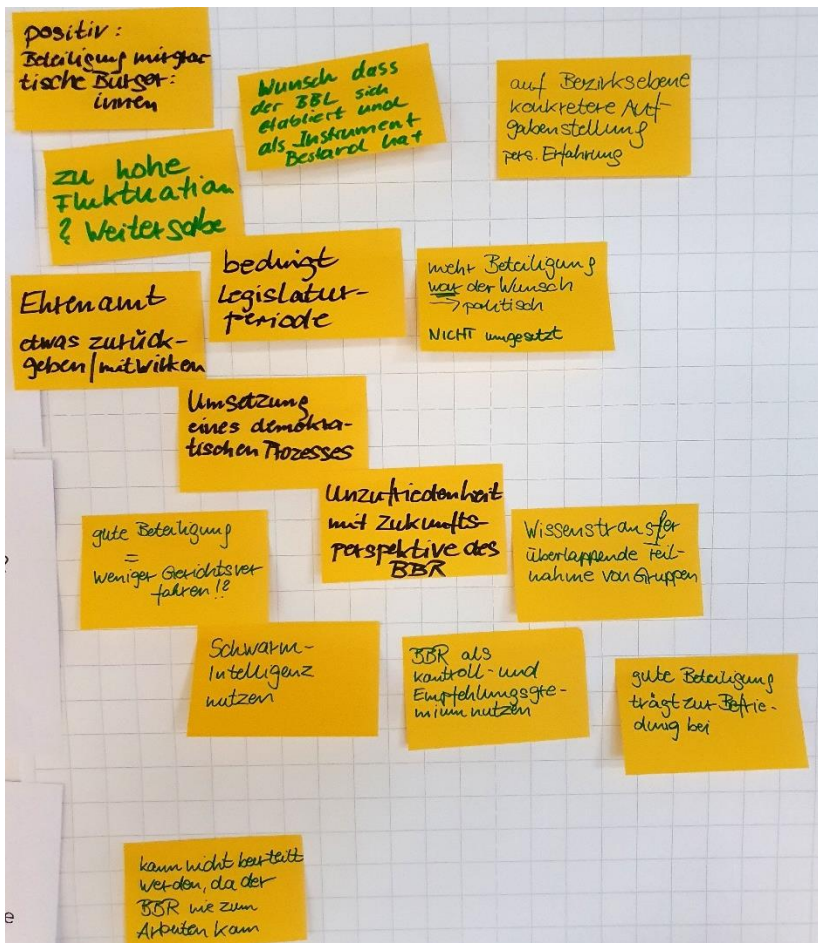 positiv:
Beteiligung migran-
tische Bürger:
innen
Wunsch dass
der BBL sich
etabliert und
als Instrument
Bestand hat
auf Bezirksebene
konkretere Auf-
gabenstellung
pers. Erfahrung
zu hohe
Fluktuation
? Weitergabe
bedingt
Legislatur-
periode
mehr Beteiligung
war der Wunsch
→ politisch
NICHT umgesetzt
Ehrenamt
etwas zurück-
geben/mitwirken
Umsetzung
eines demokra-
tischen Prozesses
Unzufriedenheit
mit Zukunfts-
perspektive des
BBR
gute Beteiligung
=
weniger Gerichtsver
fahren!?
Wissenstransfer
überlappende Teil-
nahme von Gruppen
Schwarm-
Intelligenz
nutzen
BBR als
Kontroll- und
Empfehlungsgre-
mium nutzen
gute Beteiligung
trägt zur Befrie-
dung bei
kann nicht beurteilt
werden, da der
BBR nie zum
Arbeiten kam
e